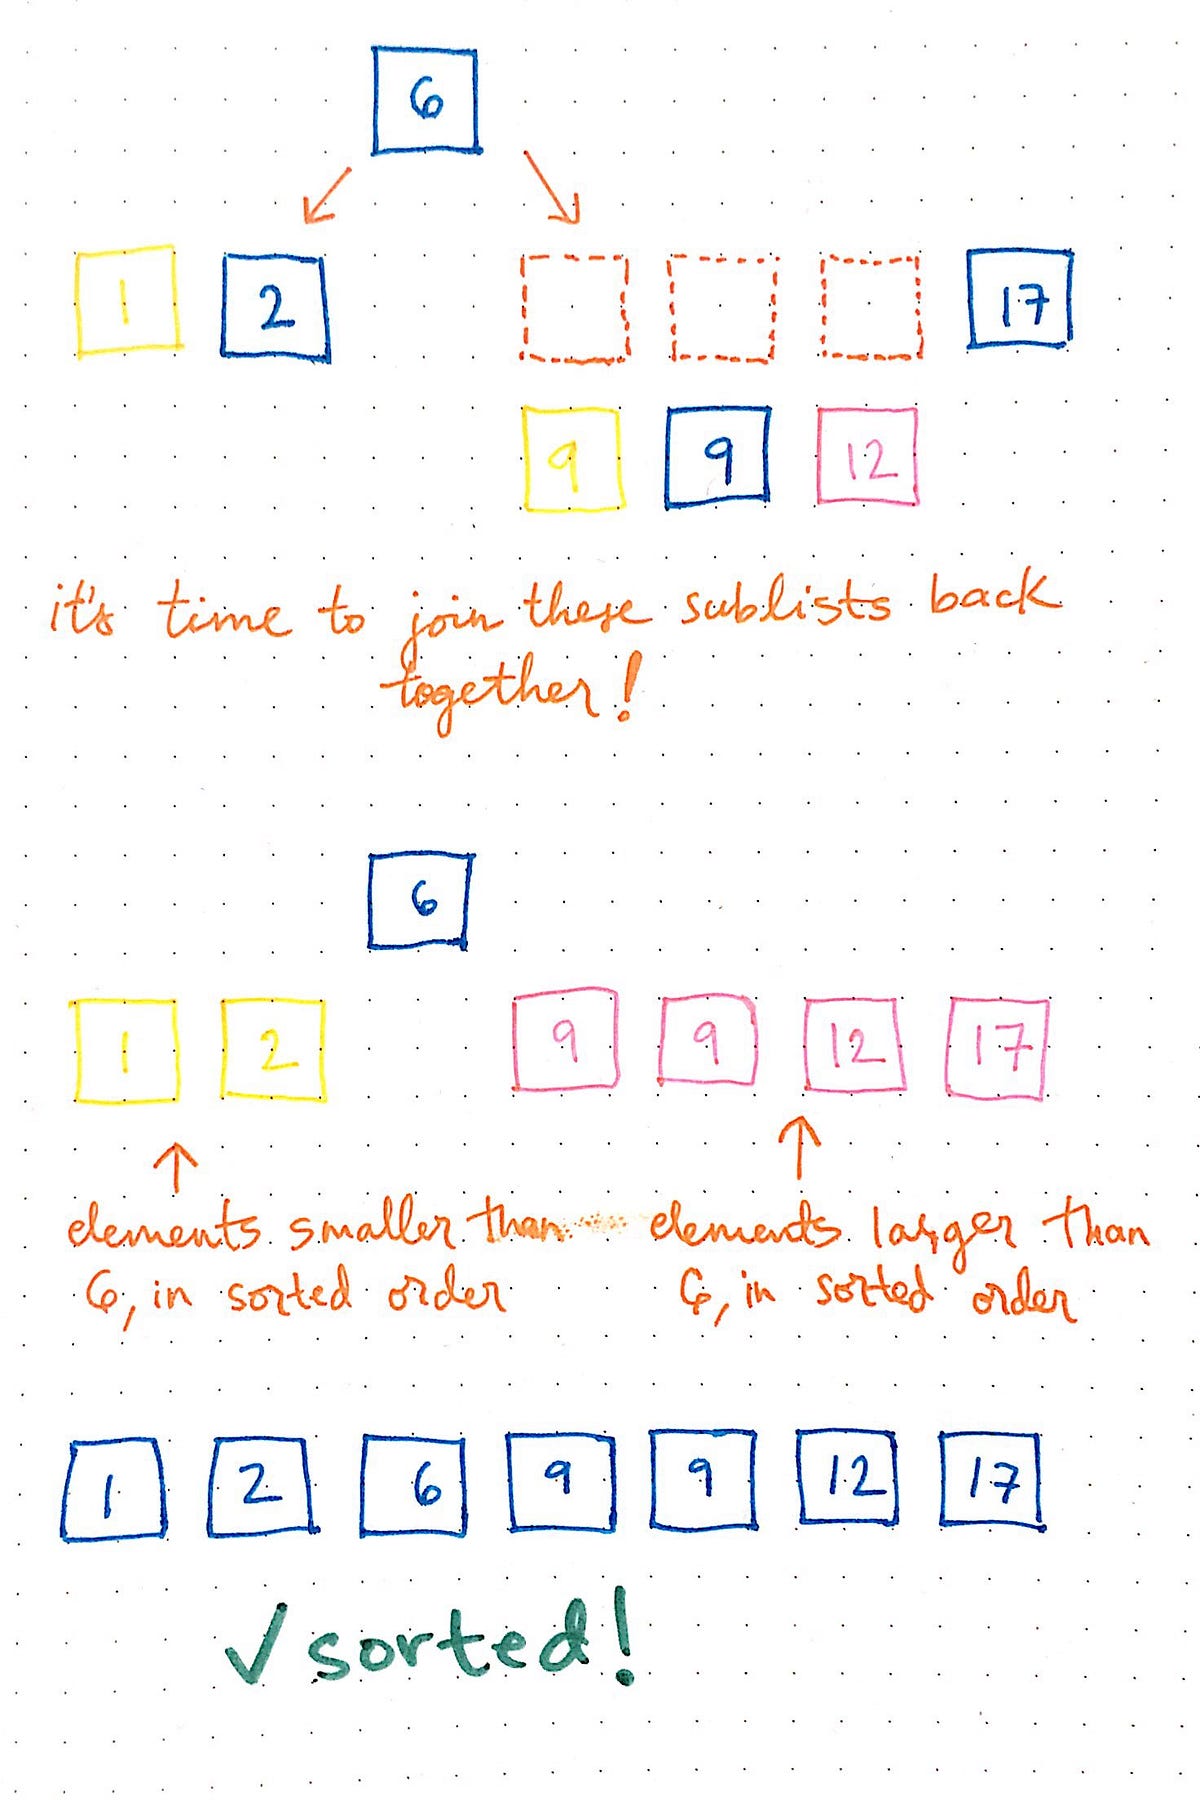 6
1 2 17
9 9 12
it's time to join these sublists back
together!
6
1 2 9 9 12 17
elements smaller than
6, in sorted order
elements larger than
6, in sorted order
1 2 6 9 9 12 17
✓ sorted!